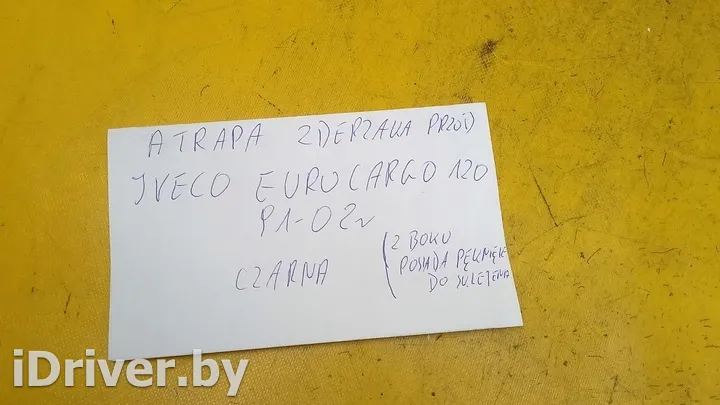 ATRAPA ZDERZAKA PRZÓD
IVECO EUROCARGO 120
91-02r
CZARNA
(Z BOKU
POSIADA PĘKNIĘCIE
DO SKLEJENIA
iDriver.by